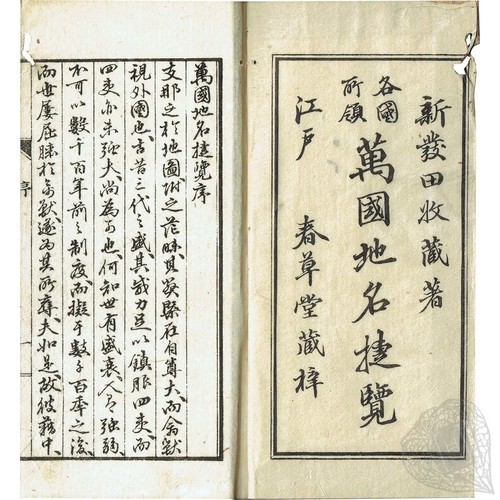 新發田收藏著
各國
所領
萬國地名捷覽
江戶
春草堂藏梓
萬國地名捷覽序
支那之於地圖附之茫昧其在自尊大而禽獸
視外國也古昔三代之盛其威力足以鎮服四夷而
四夷亦未強大尚為可也何知世有盛衰人有強弱
不可以數千百年前之制度而擬于數千百年之後
而世屢屈膝於禽獸遂為其所奪夫如是故彼籍中
序